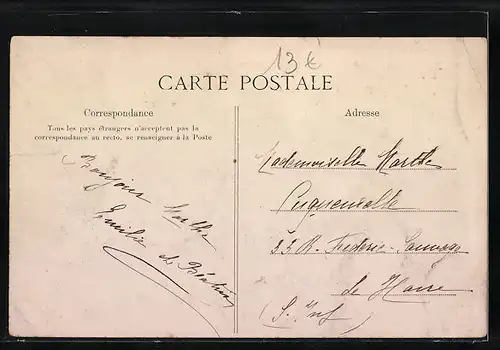 13€
CARTE POSTALE
Correspondance
Tous les pays étrangers n'acceptent pas la
correspondance au recto, se renseigner à la Poste
Bonjour Marthe
Emilie
Adresse
Mademoiselle Marthe
33 R. Frederic-Sauvage
(S. Inf)